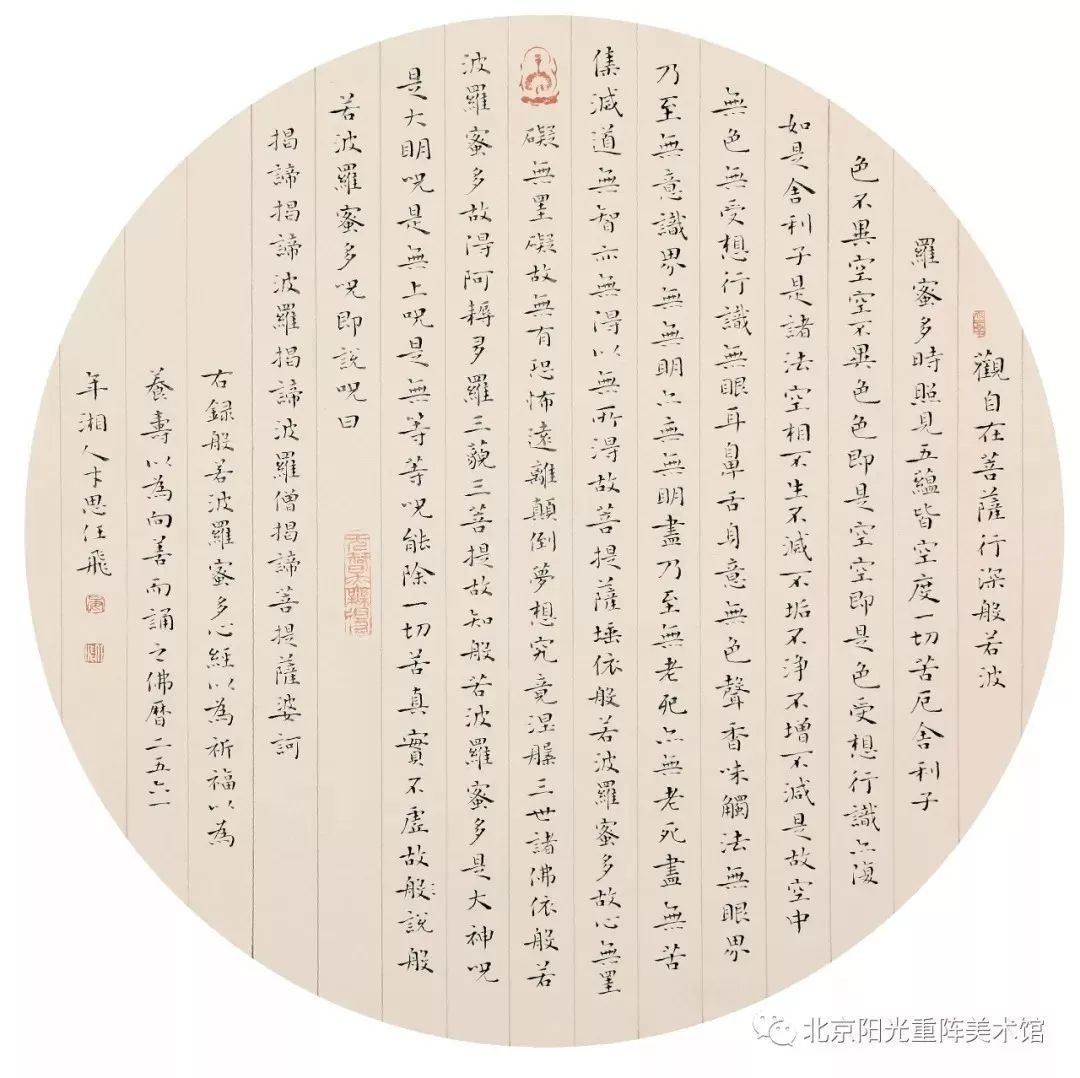 觀自在菩薩行深般若波
羅蜜多時照見五蘊皆空度一切苦厄舍利子
色不異空空不異色色即是空空即是色受想行識亦復
如是舍利子是諸法空相不生不滅不垢不淨不增不減是故空中
無色無受想行識無眼耳鼻舌身意無色聲香味觸法無眼界
乃至無意識界無無明亦無無明盡乃至無老死亦無老死盡無苦
集滅道無智亦無得以無所得故菩提薩埵依般若波羅蜜多故心無罣
礙無罣礙故無有恐怖遠離顛倒夢想究竟涅槃三世諸佛依般若
波羅蜜多故得阿耨多羅三藐三菩提故知般若波羅蜜多是大神咒
是大明咒是無上咒是無等等咒能除一切苦真實不虛故般說般
若波羅蜜多咒即說咒曰
揭諦揭諦波羅揭諦波羅僧揭諦菩提薩婆訶
右録般若波羅蜜多心經以為祈福以為
養壽以為向善而誦之佛曆二五六一
年湘人卞思任飛
北京阳光重阵美术馆